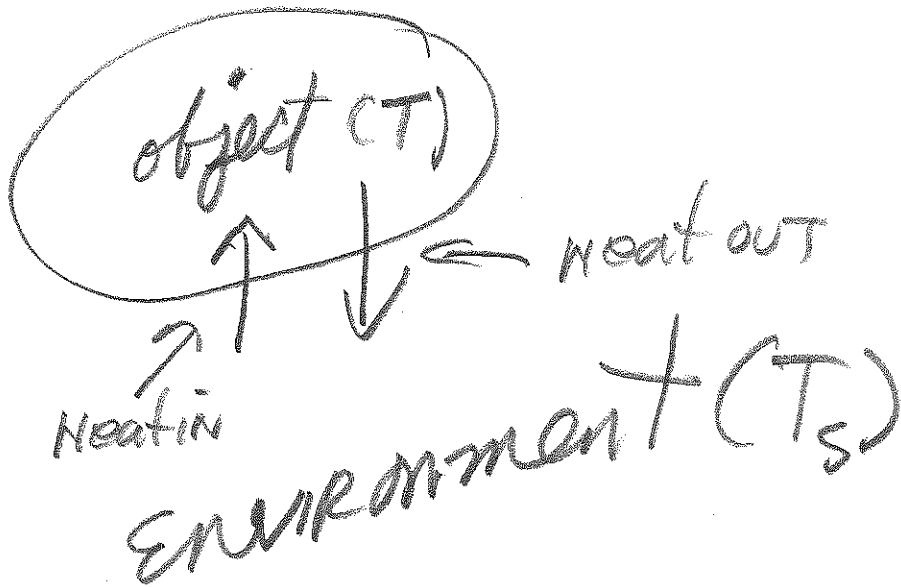 object (T)
Heat OUT
Heat iN
ENVIRONment (Ts)